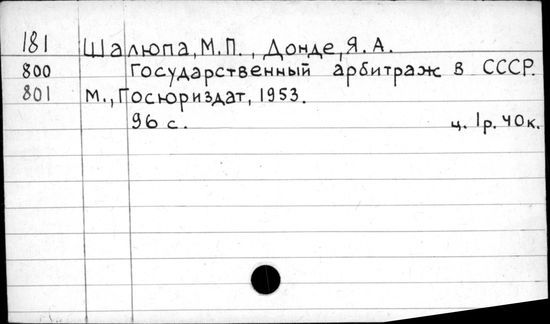 181 Шалюпа, М.П., Донде, Я.А.
800 Государственный арбитраж в СССР.
801 М., Госюриздат, 1953.
96 с. ц. 1р. 40к.